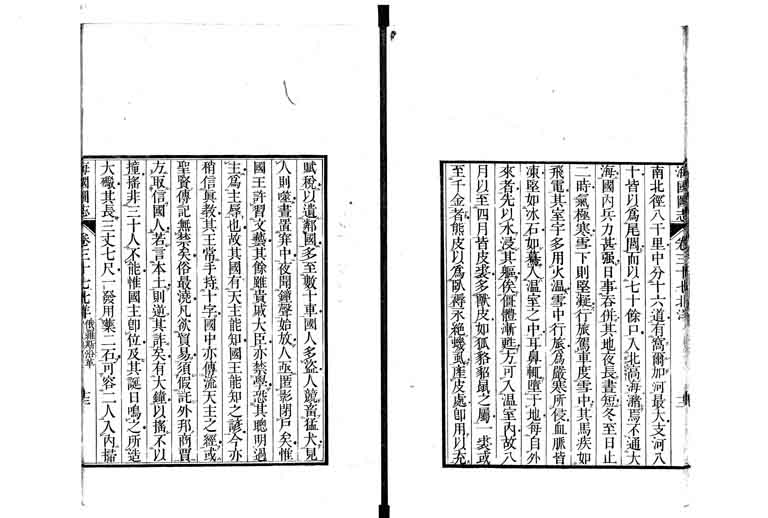 海國圖志 卷三十七 北洋
南北徑八千里中分十六道有窩爾加河最大支河八
十皆以為尾閭而以七十餘戸入北高海瀦焉不通大
海國內兵力甚强日事吞併其地夜長晝短冬至日止
二時氣極寒雪下則堅凝行旅駕車度雪中其馬疾如
飛電其室宇多用火温雪中行旅為嚴寒所侵血脈皆
凍堅如冰石如驀入温室之中耳鼻輒墮于地每自外
來者先以水浸其軀俟僵體漸甦方可入温室內故八
月以至四月皆皮裘多獸皮如狐貉貂鼠之屬一裘或
至千金者熊皮以為臥褥永絕蟣虱產皮處卽用以充
賦稅以遺鄰國多至數十車國人多盜人競畜猛犬見
人則噬晝置穽中夜聞鐘聲始放人亟匿影閉戸矣惟
國王許習文藝其餘雖貴戚大臣亦禁學恐其聰明過
主為主辱也故其國有天主能知國王能知之諺今亦
稍信眞教其王常手持十字國中亦傳流天主之經或
聖賢傳記無禁矣俗最澆凡欲貿易須假託外邦商賈
方取信國人若言本土則道其詐矣有大鐘以搖不以
撞搖非三十人不能惟國主卽位及其誕日鳴之所造
大礮其長三丈七尺一發用藥二石可容二人入內掃
海國圖志 卷三十七 北洋 俄羅斯沿革 十三